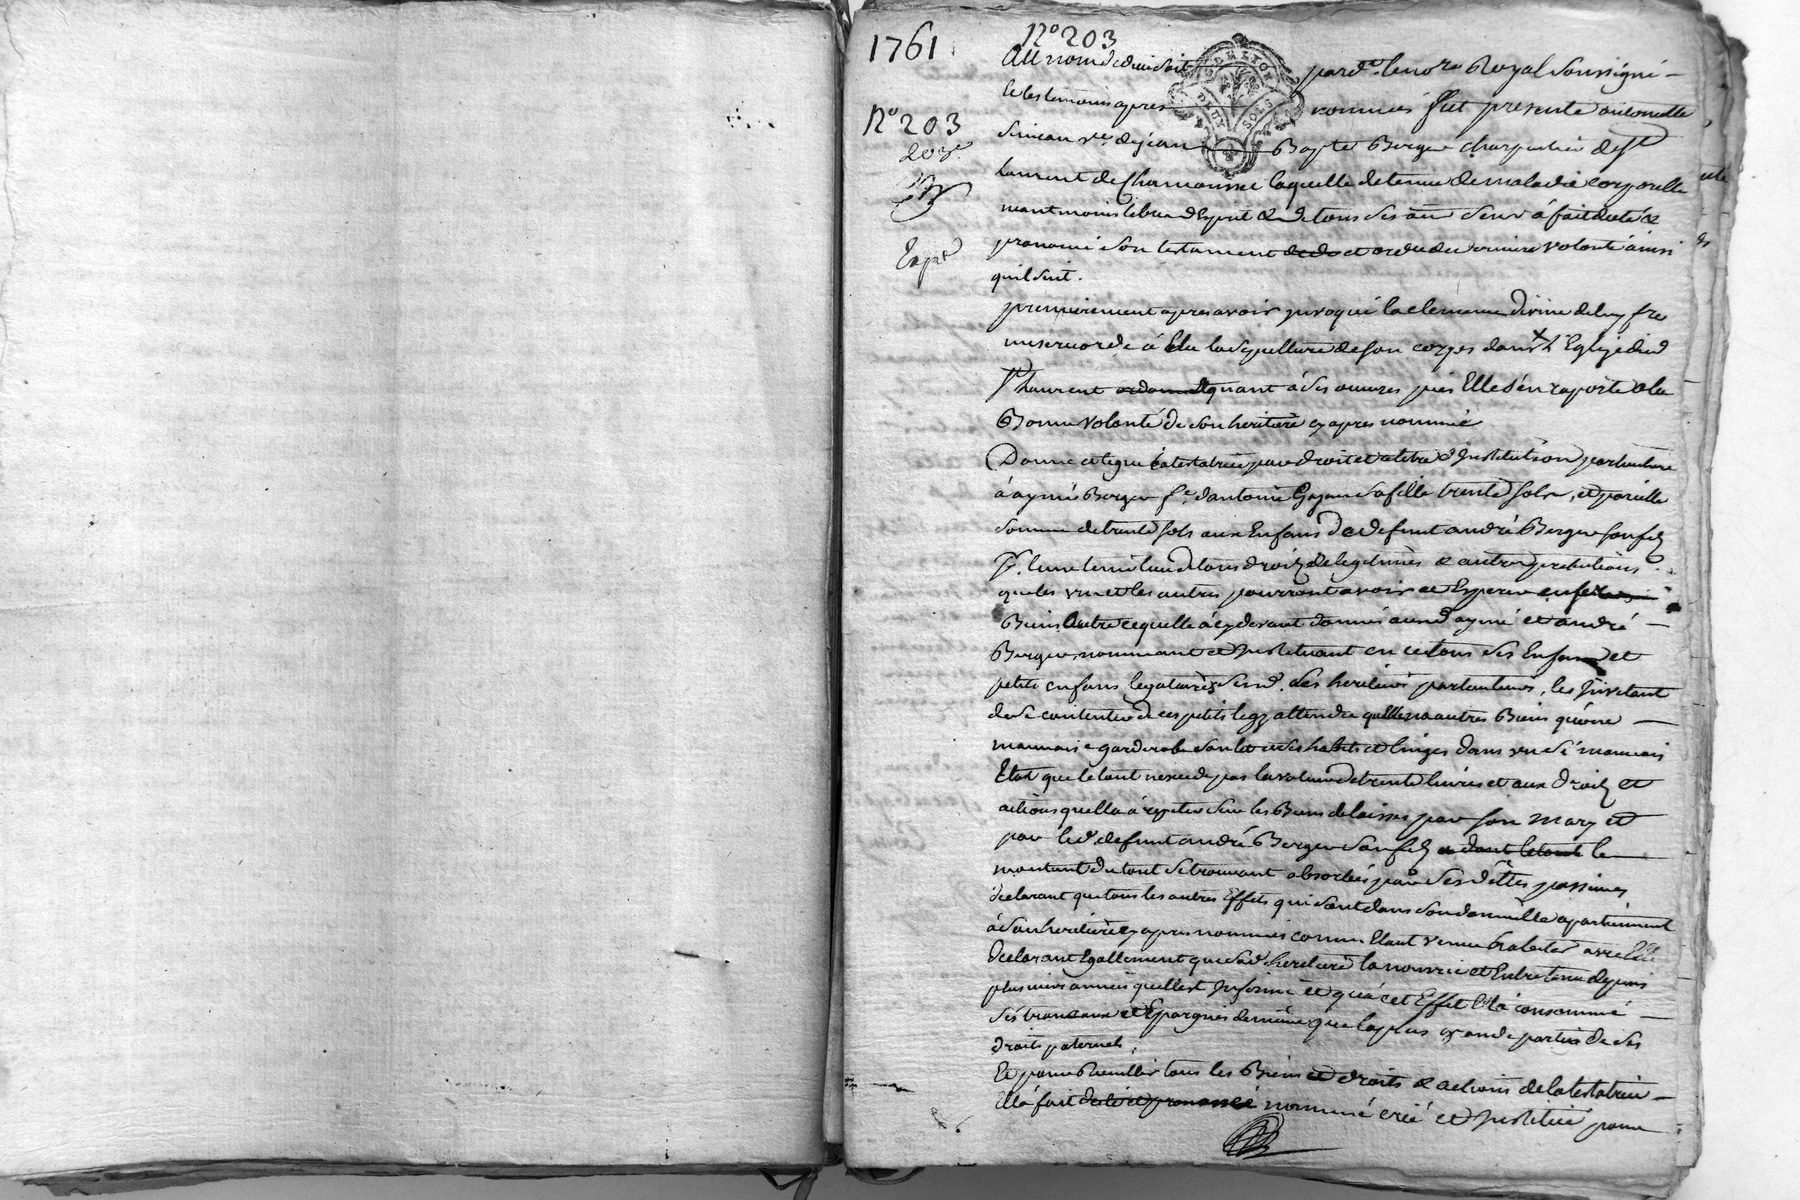 1761
N° 203
N° 203
203e
Expé
GDE LYON
DEUX SOLS
Au nom de dieu soit par dt le nore Royal soussigné
et les temoins apres nommés fut presente antoinette
Simean ve de jean Bapte Berger charpentier de St
Laurent de Chamousset laquelle detenue de maladie corporelle
neantmoins libre d'Esprit et de tous ses sens à fait dicté &
prononcé son testament et ordce de derniere volonté ainsi
quil suit.
premierement apres avoir invoqué la clemence divine de luy fre
misericorde à Elu la sepulture de son corps dans l'Eglise dud
St Laurent quant à ses œuvres pies Elle s'en raporte à la
Bonne volonté de son heritiere cy apres nommée
Donne et legue la testatrice par droit et a titre d'Institution particuliere
à aymé Berger fe d'antoine sa fille trente sols, et pareille
somme de trente sols aux Enfans de defunt andré Berger son fils
pr. leur tenir lieu de tous droits de legitimes & autres pretentions
que les uns et les autres pourront avoir et Esperer
Biens outre ce quelle à cy devant donné aud aymé et andré
Berger, nommant et Instituant en ce tous ses Enfans et
petits enfans legataires sesd. ses heritiers particuliers, les Invitant
de se contenter de ces petits legs attendu quelle na autres Biens qu'une
mauvaise garderobe son lit et ses habits et linges dans un si mauvais
Etat que le tout nexcede pas la valeur de trente livres et aux droits et
actions quelle à repeter sur les Biens delaissés par son mary et
par led. defunt andré Berger son fils le
montant du tout se trouvant absorbés par ses dettes passives
declarant que tous les autres Effets qui sont dans son domicille apartiennent
à son heritiere cy apres nommée comme Etant venue habiter avec Elle
declarant Egallement que sad. heritiere la nourrie et Entretenue depuis
plusieurs années quelle est Infirme et qu'à cet Effet Elle à consommé
ses travaux et Epargnes de même que la plus grande partie de ses
droits paternels.
Et pour Recueillir tous les Biens et droits & actions de la testatrice
Elle à fait dicté et prononcé nommé créé et Institué pour